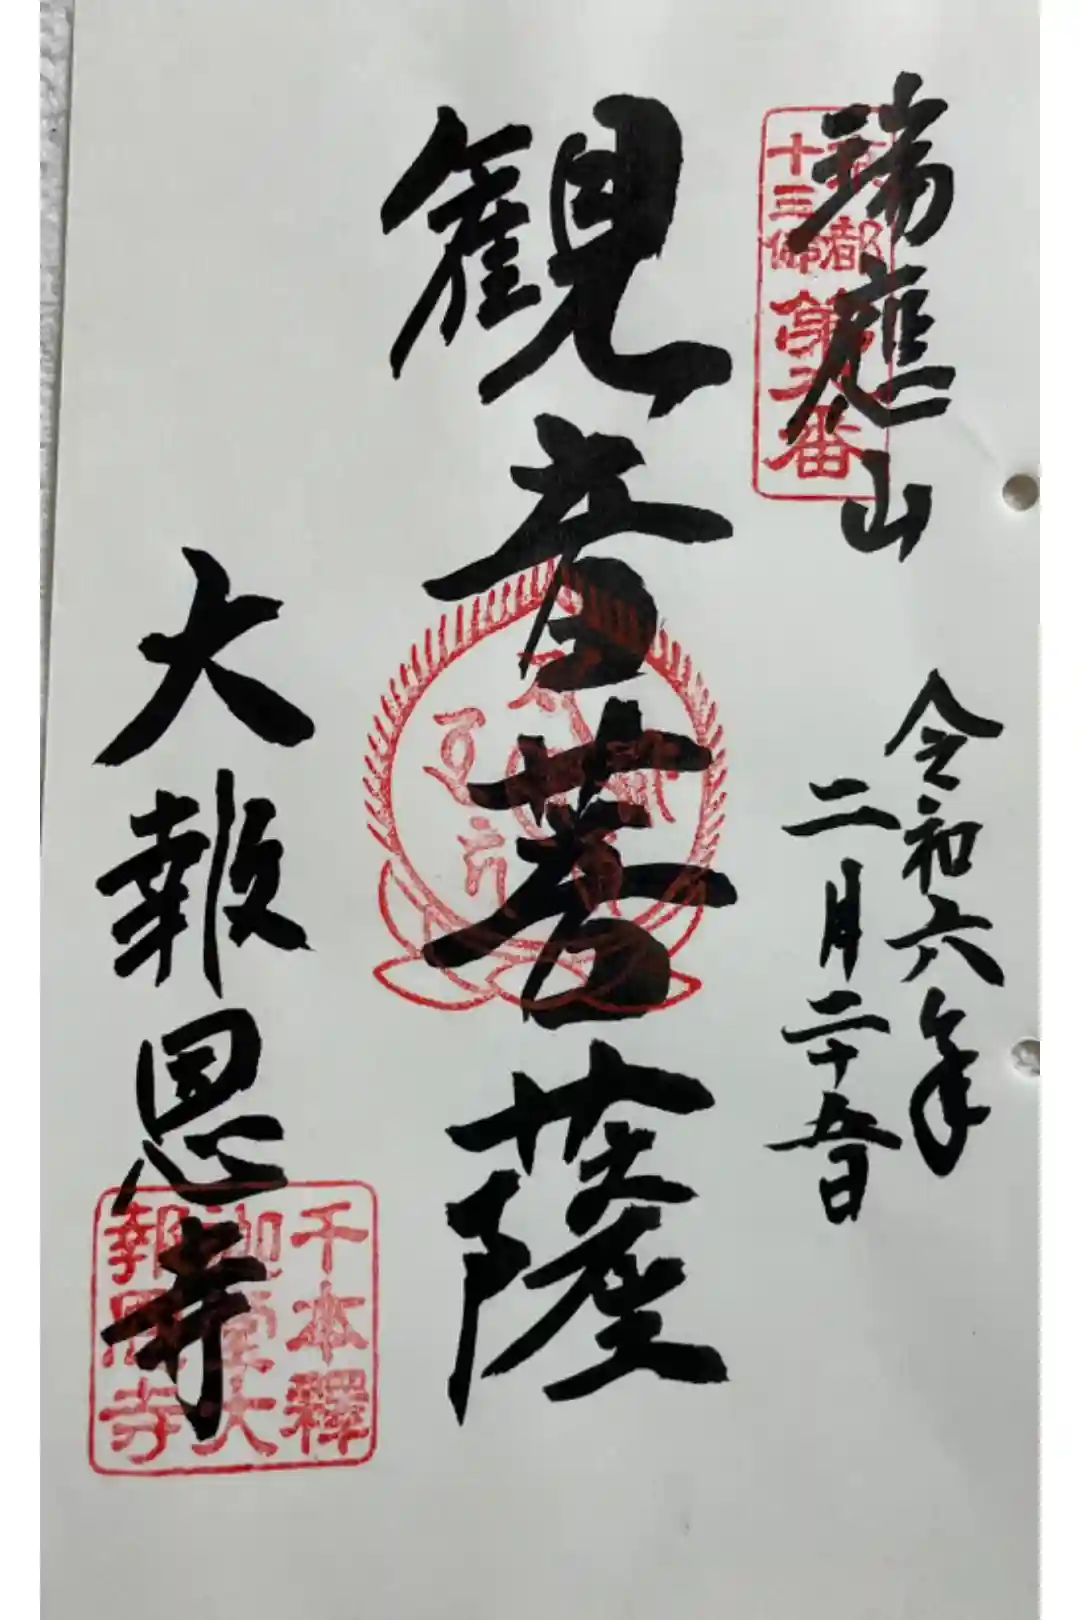 瑞應山
京都
十三佛
第番
令和六年
二月二十五日
観音菩薩
大報恩寺
千本釋
迦堂大
報恩寺